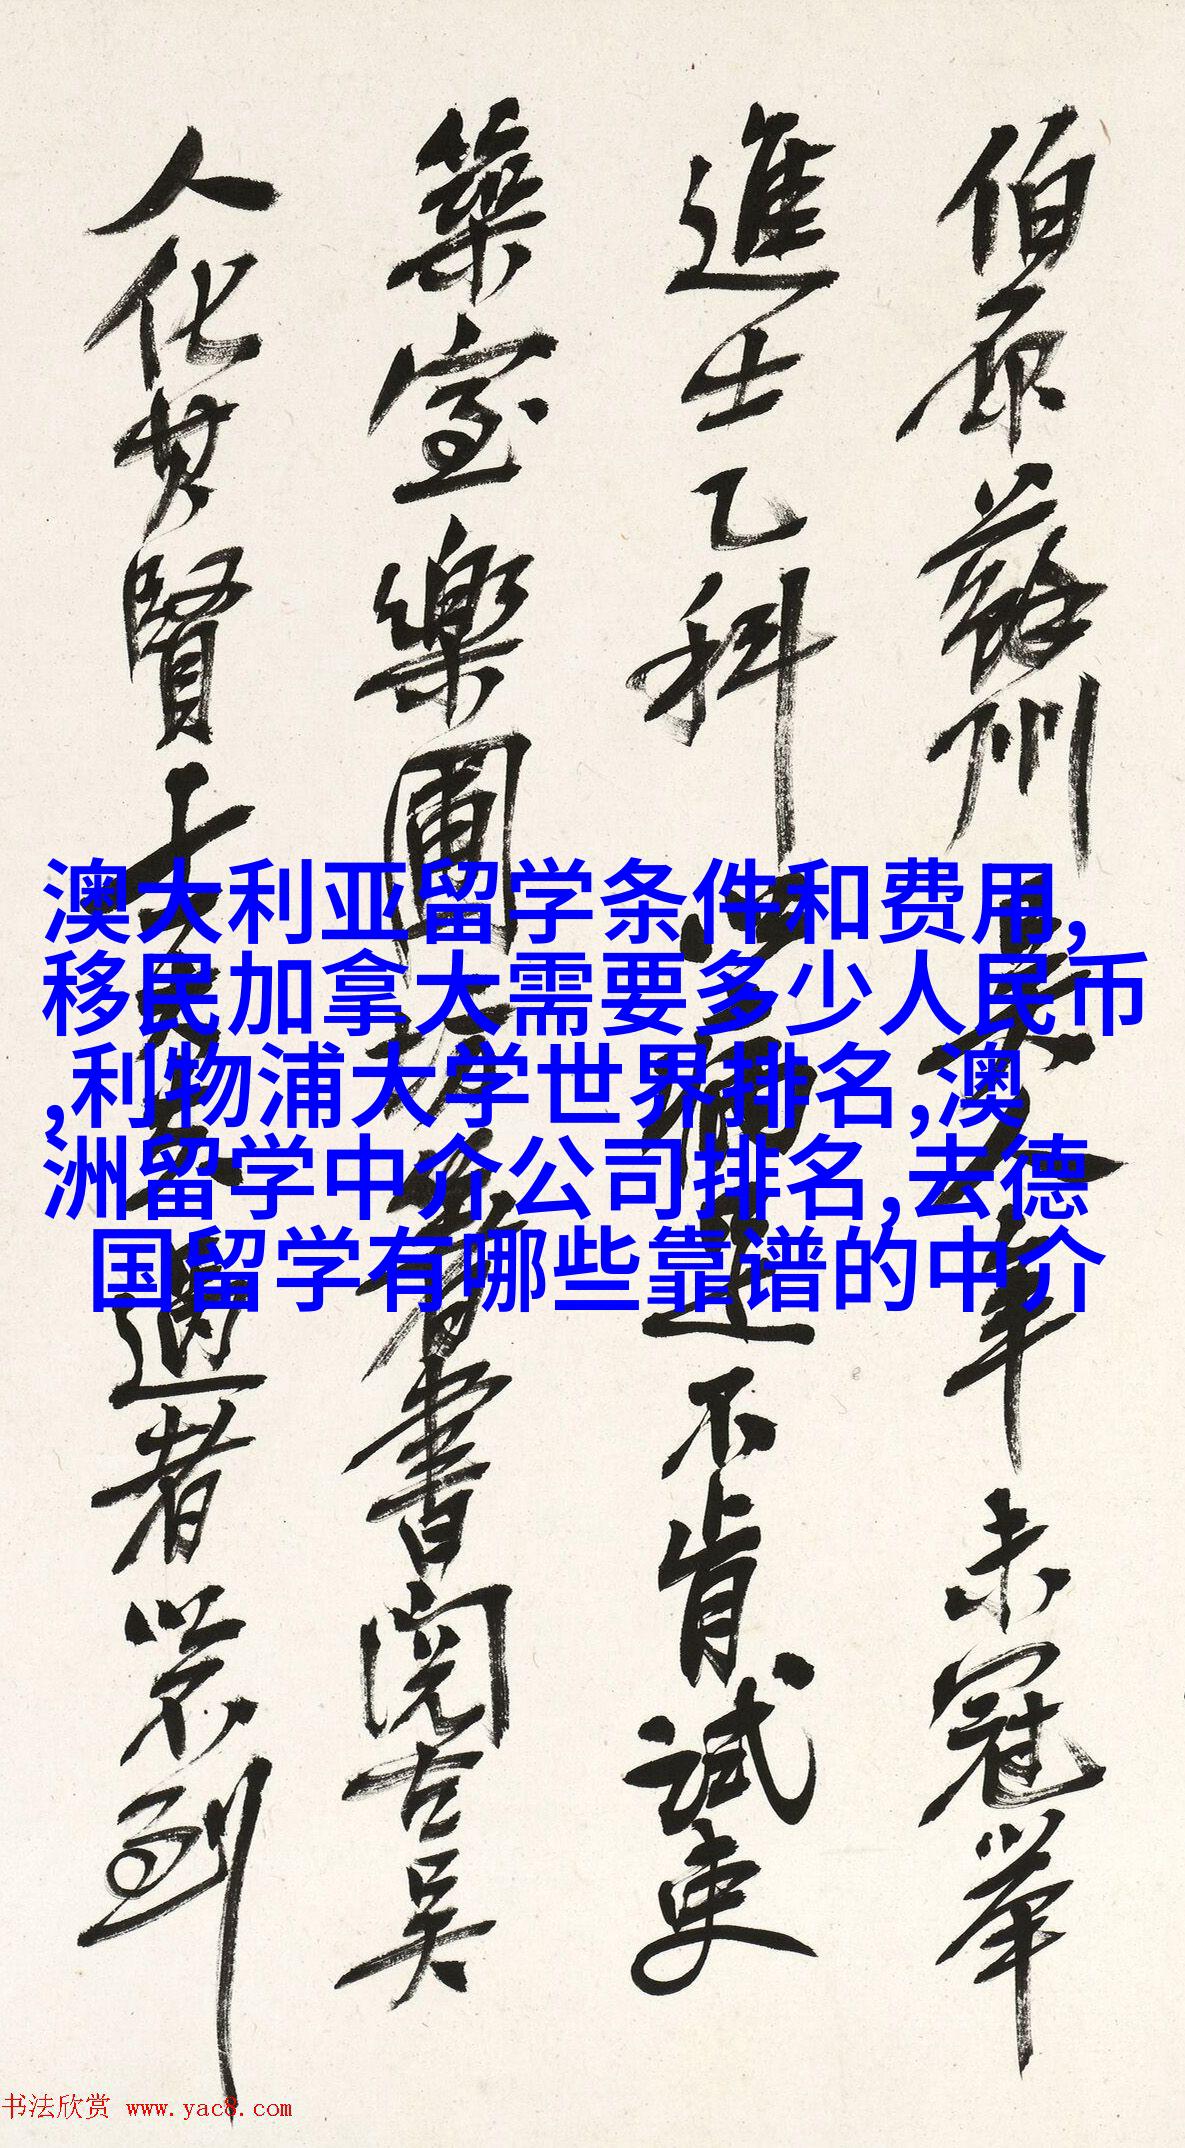 伯原蘇州
長文年未冠舉
進士乙科以病足不肯試吏
築室樂圃坊著書閱古吳
人化其賢
過者以不到
澳大利亚留学条件和费用,
移民加拿大需要多少人民币
,利物浦大学世界排名,澳
洲留学中介公司排名,去德
国留学有哪些靠谱的中介
书法欣赏 www.yac8.com